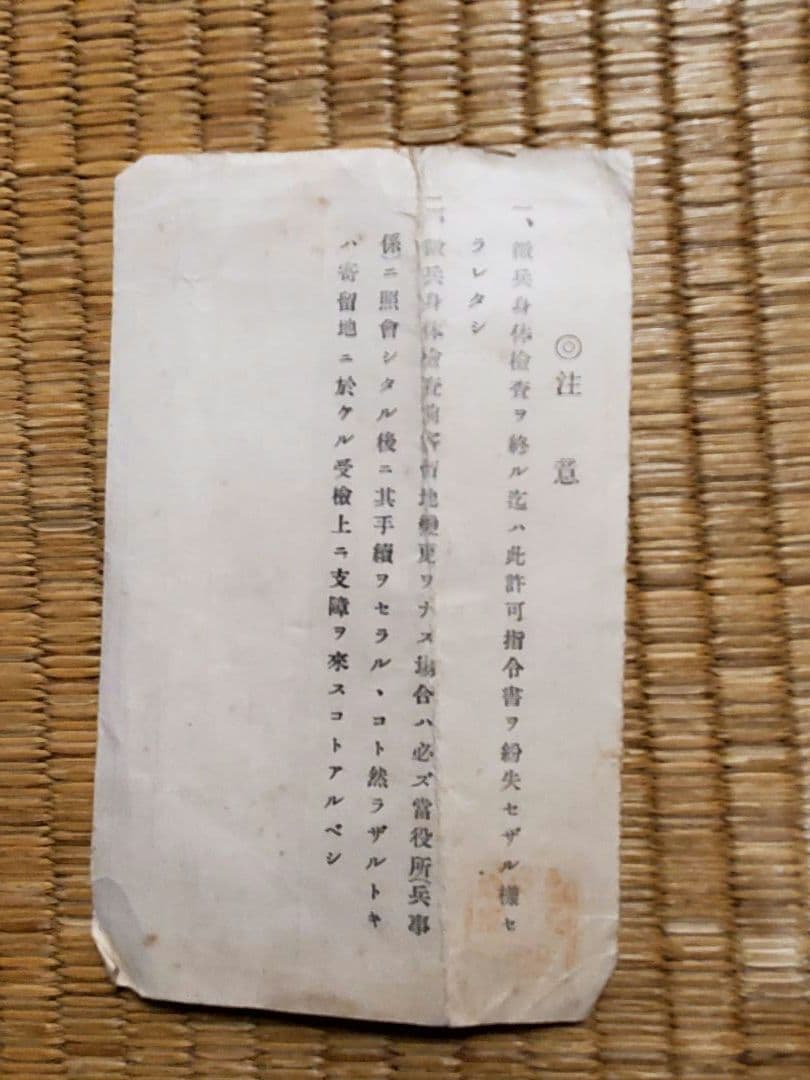 ◎注意
一、徴兵身体檢査ヲ終ル迄ハ此許可指令書ヲ紛失セザル樣セ
ラレタシ
二、徴兵身体檢査前寄留地變更ヲナス場合ハ必ズ當役所(兵事
係)ニ照會シタル後ニ其手續ヲセラルヽコト然ラザルトキ
ハ寄留地ニ於ケル受檢上ニ支障ヲ來スコトアルベシ